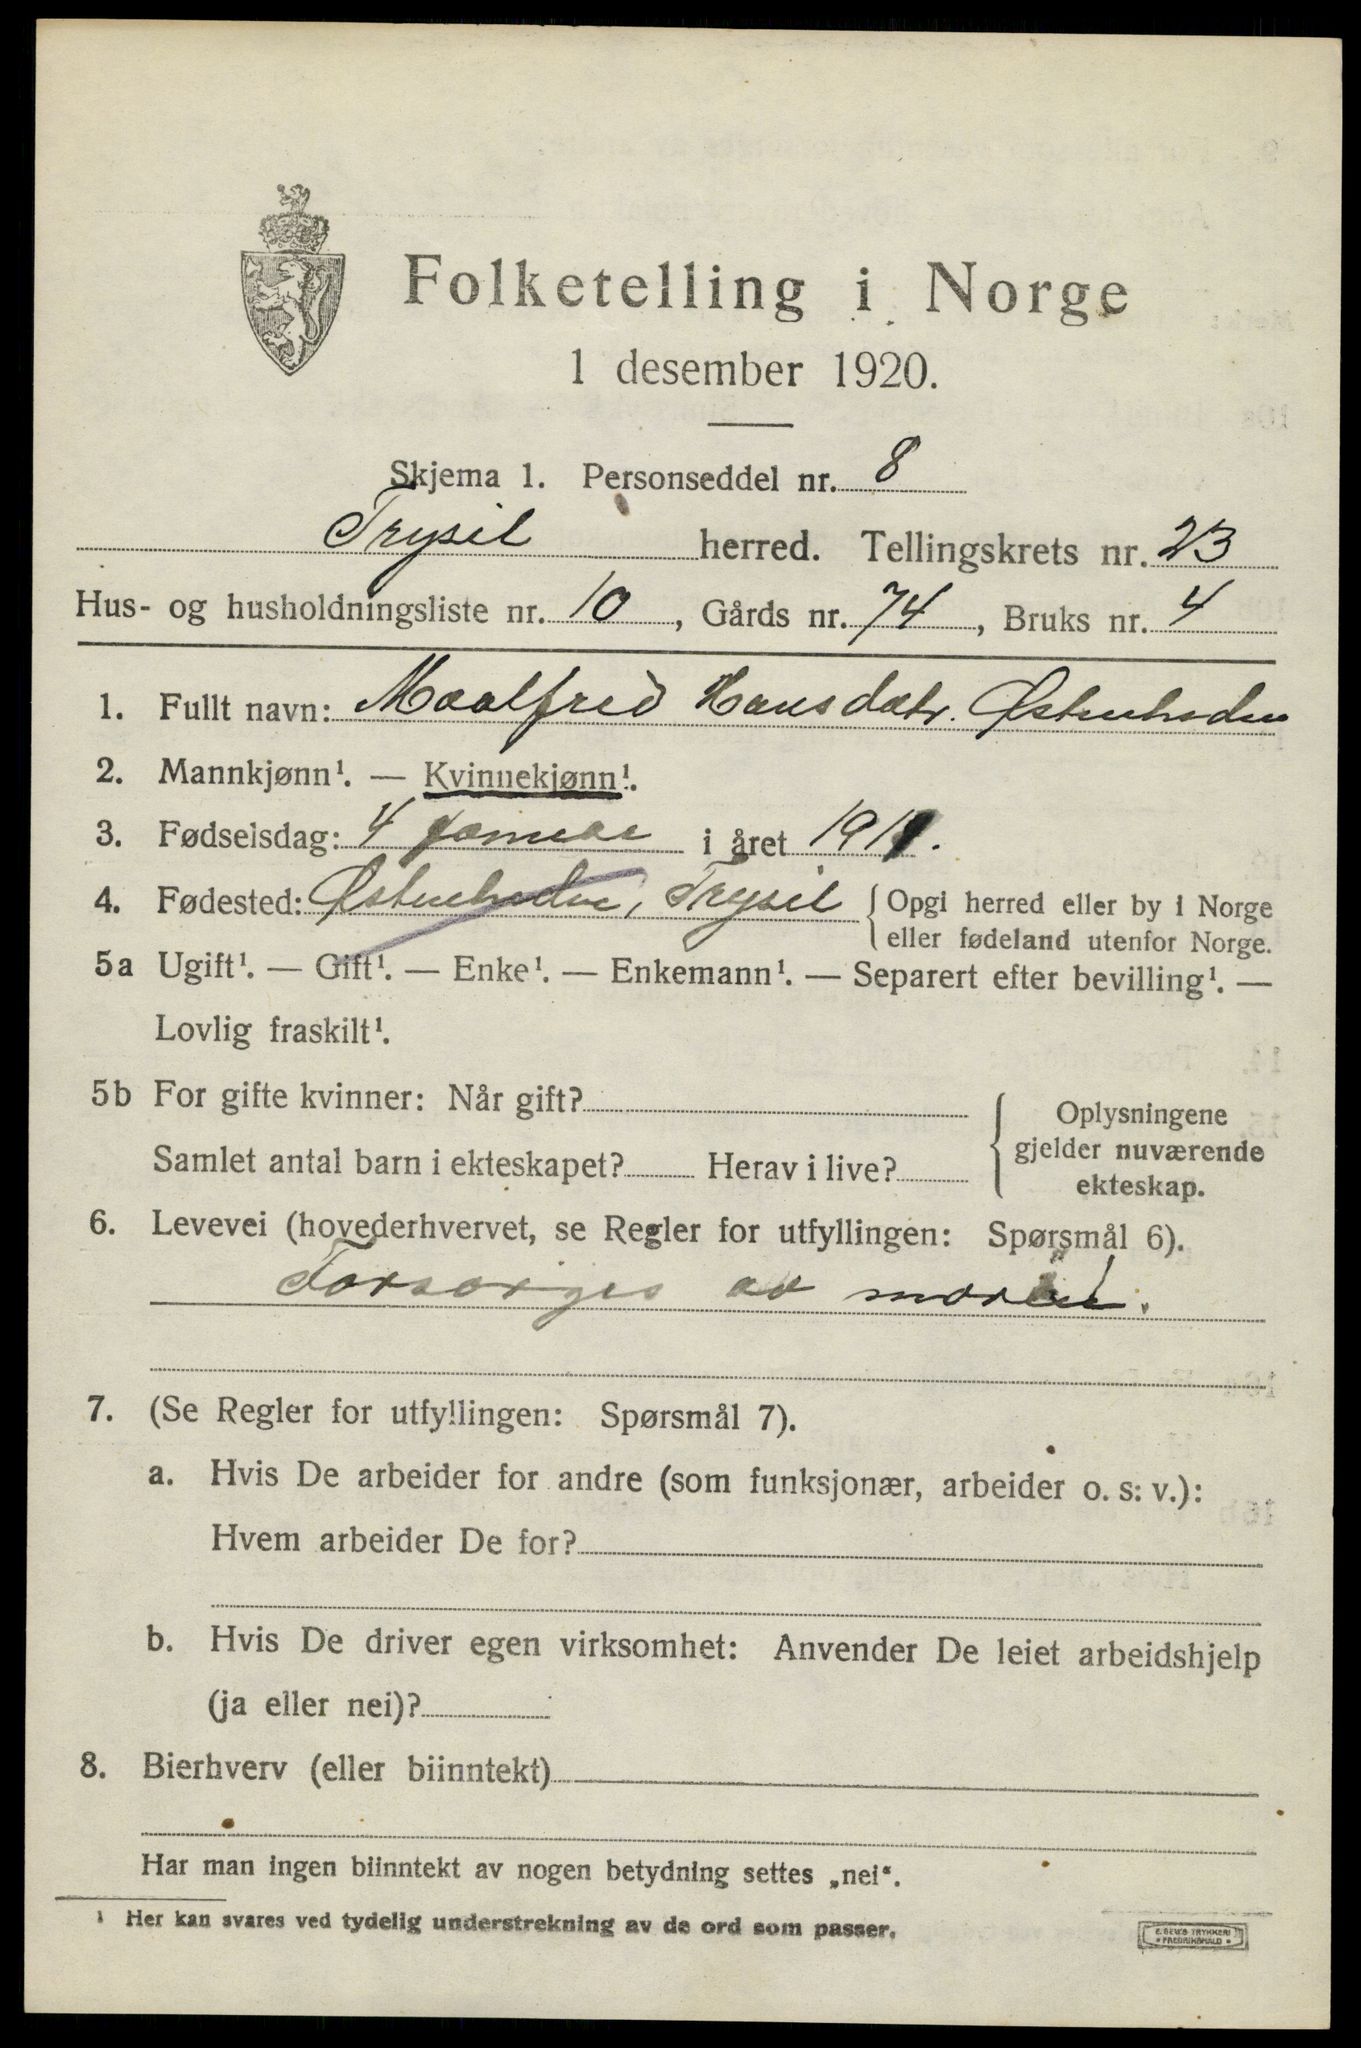 Folketelling i Norge
1 desember 1920.
Skjema 1. Personseddel nr. 8
Trysil herred. Tellingskrets nr. 23
Hus- og husholdningsliste nr. 10, Gårds nr. 74, Bruks nr. 4
1. Fullt navn: Maalfrid Hansdatr. Østenheden
2. Mannkjønn¹. — Kvinnekjønn¹.
3. Fødselsdag: 4 januar i året 1911.
4. Fødested: Østenheden, Trysil { Opgi herred eller by i Norge
eller fødeland utenfor Norge.
5a Ugift¹. — Gift¹. — Enke¹. — Enkemann¹. — Separert efter bevilling¹. —
Lovlig fraskilt¹.
5b For gifte kvinner: Når gift?
Samlet antal barn i ekteskapet? Herav i live?
Oplysningene
gjelder nuværende
ekteskap.
6. Levevei (hovederhvervet, se Regler for utfyllingen: Spørsmål 6).
Forsørges av moren.
7. (Se Regler for utfyllingen: Spørsmål 7).
a. Hvis De arbeider for andre (som funksjonær, arbeider o. s. v.):
Hvem arbeider De for?
b. Hvis De driver egen virksomhet: Anvender De leiet arbeidshjelp
(ja eller nei)?
8. Bierhverv (eller biinntekt)
Har man ingen biinntekt av nogen betydning settes „nei“.
¹ Her kan svares ved tydelig understrekning av de ord som passer.
E. SEM'S TRYKKERI
FREDRIKSHALD